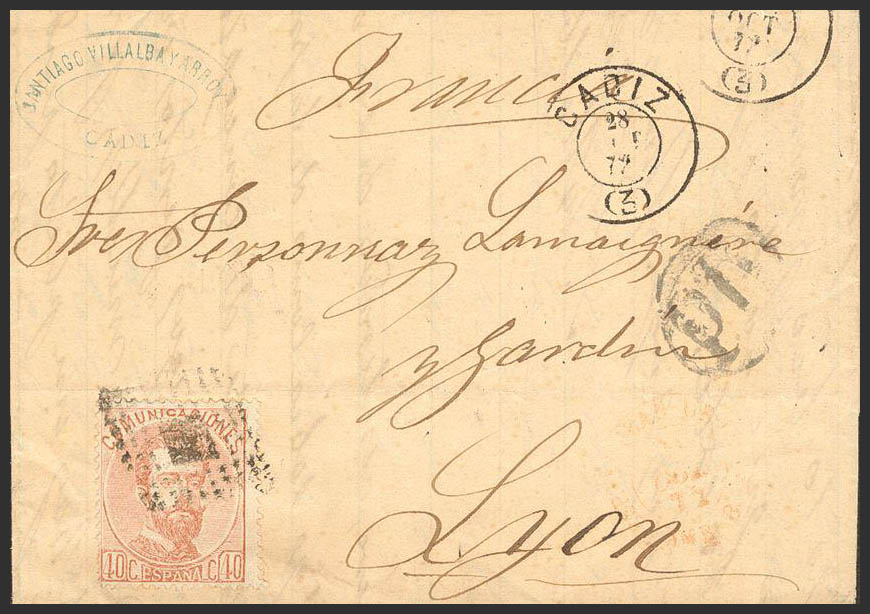 SANTIAGO VILLALBA Y ARROYO
CADIZ
OCT
77
(3)
Francia
CADIZ
28
77
(3)
Sres Personnaz Lamaignére
y Jardin
Lyon
COMUNICACIONES
40 C. ESPAÑA C. 40